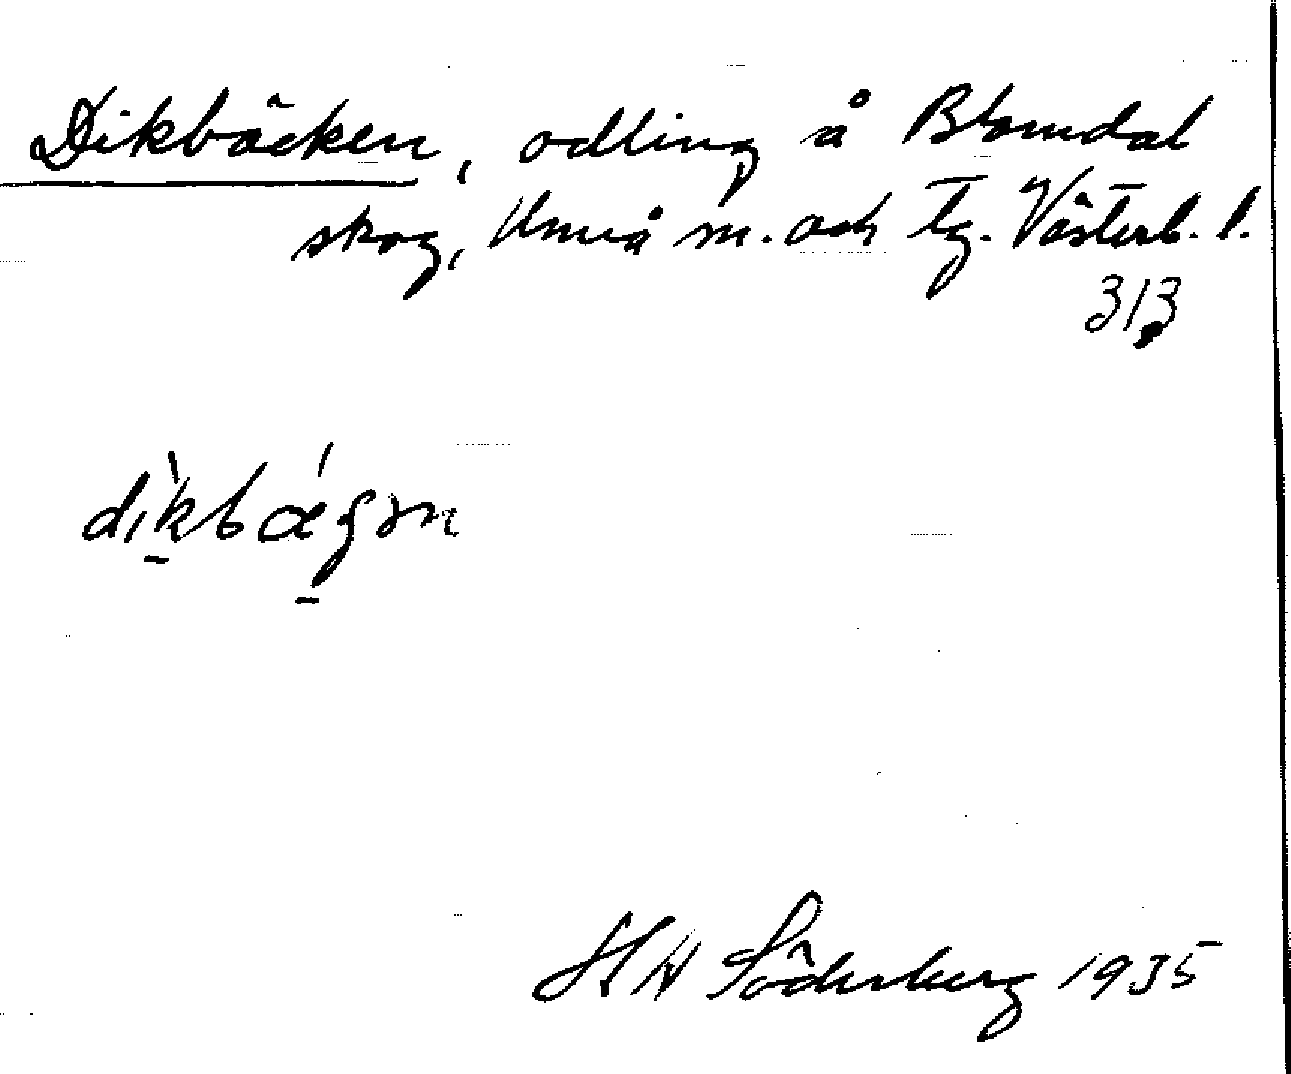 Dikbäcken, odling å Blomdal
skog, Umeå m. och tg. Västerb. l.
313
HH Söderberg 1935